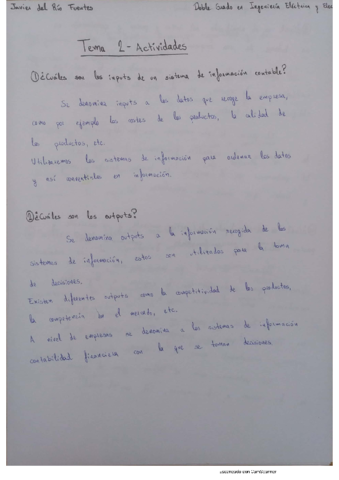 Javier del Río Fuentes Doble Grado en Ingeniería Eléctrica y
Tema 2 - Actividades
① ¿Cuáles son los inputs de un sistema de información contable?
Se denomina inputs a los datos que recoge la empresa,
como por ejemplo los costes de los productos, la calidad de
los productos, etc.
Utilizaremos los sistemas de información para ordenar los datos
y así convertirlos en información.
② ¿Cuáles son los outputs?
Se denomina outputs a la información recogida de los
sistemas de información, estos son utilizados para la toma
de decisiones.
Existen diferentes outputs como la competitividad de los productos,
la competencia en el mercado, etc.
A nivel de empresas se denomina a los sistemas de información
contabilidad financiera con la que se toman decisiones.
Escaneado con CamScanner